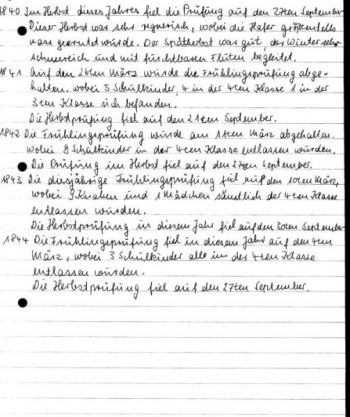 1840 Im Herbst dieses Jahres fiel die Prüfung auf den 27ten September
Dieser Herbst war sehr regnerisch, wobei die Hafer größtenteils
nass geerntet wurde. Der Spätherbst war gut, der Winter sehr
schneereich und mit furchtbaren Fluten begleitet.
1841 Auf den 24ten März wurde die Frühlingsprüfung abge-
halten. wobei 5 Schulkinder, 4 in der 4ten Klasse 1 in der
3ten Klasse sich befanden.
Die Herbstprüfung fiel auf den 21ten September.
1842 Die Frühlingsprüfung wurde am 1ten März abgehalten.
wobei 8 Schulkinder in der 4ten Klasse entlassen wurden.
Die Prüfung im Herbst fiel auf den 27ten September.
1843 Die diesjährige Frühlingsprüfung fiel auf den 10ten März,
wobei 9 Knaben und 1 Mädchen sämtlich der 4ten Klasse
entlassen wurden.
Die Herbstprüfung in diesem Jahr fiel auf den 30ten September
1844 Die Frühlingsprüfung fiel in diesem Jahr auf den 4ten
März, wobei 3 Schulkinder alle in der 4ten Klasse
entlassen wurden.
Die Herbstprüfung fiel auf den 27ten September.